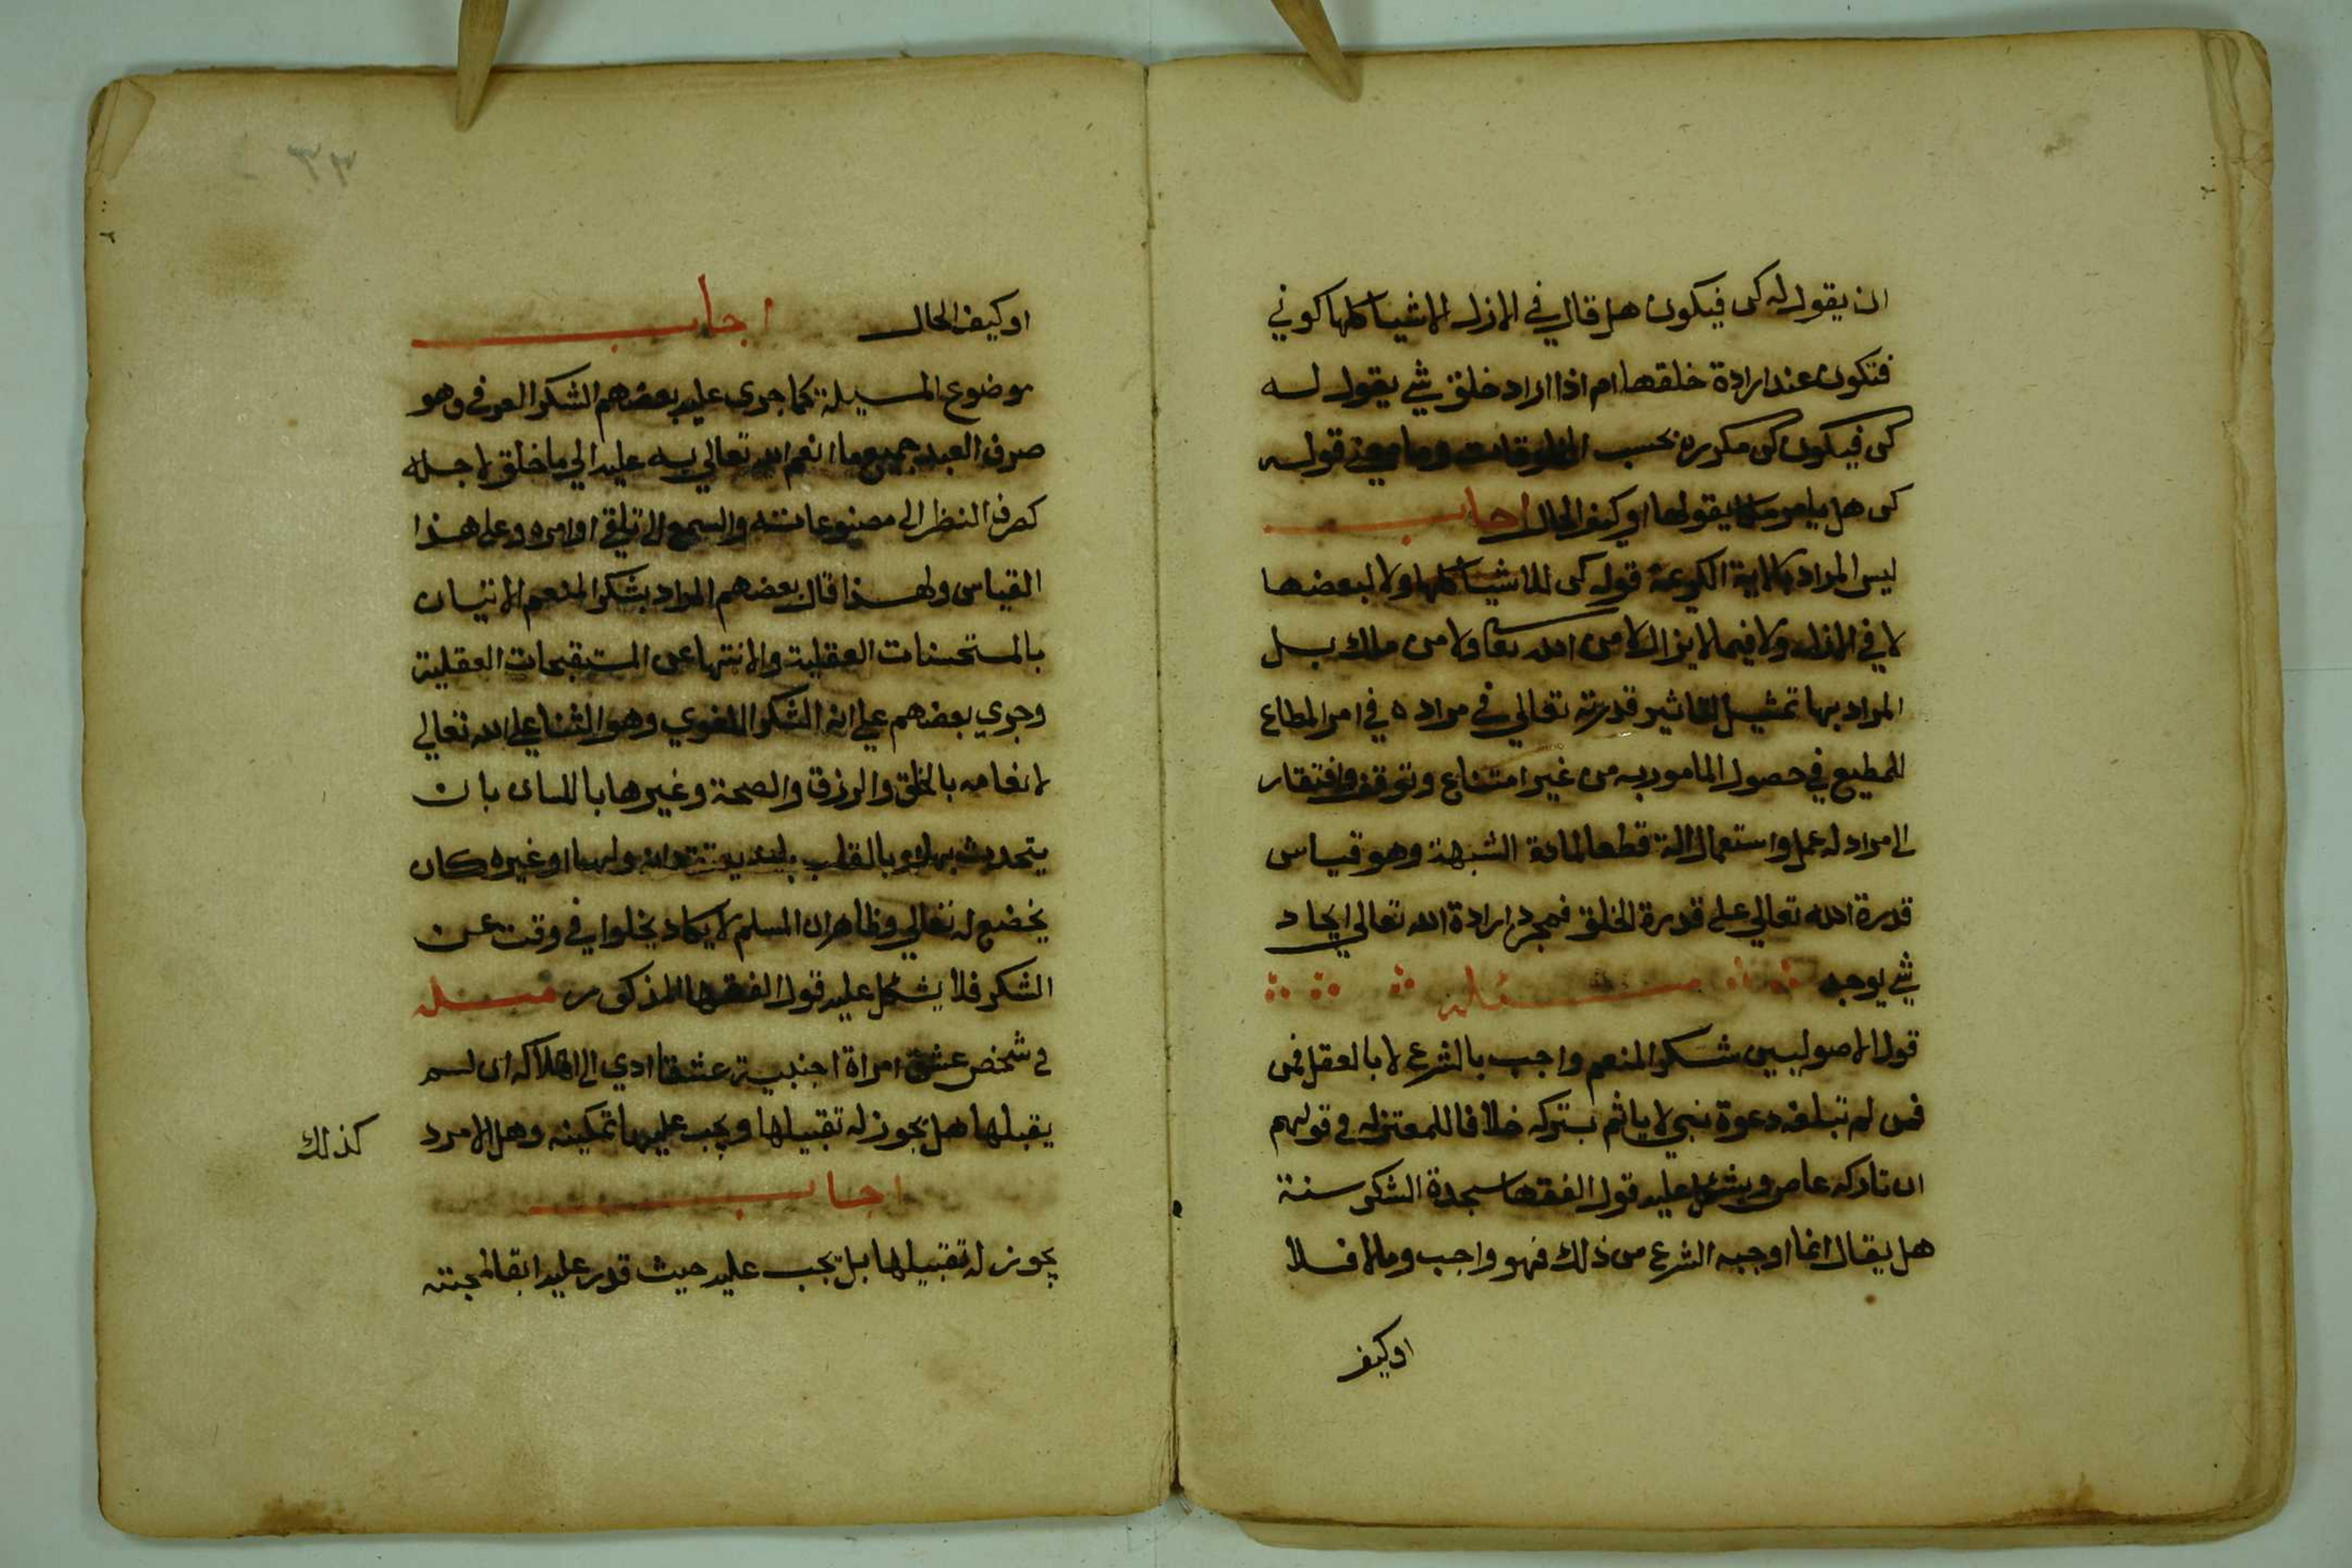 ان يقول له كن فيكون هل قال في الازل للاشيا كلها كوني
فتكون عند ارادة خلقها ام اذا اراد خلق شي يقول له
كن فيكون كن مكرره بحسب المخلوقات وما معني قوله
كن هل يامر ملكا يقولها او كيف الحال اجاب
ليس المراد بالاية الكريمة قوله كن للاشيا كلها ولا لبعضها
لا في الازل ولا فيما لا يزال لا من الله تعا ولا من ملك بل
المراد بها تمثيل لتاثير قدرته تعالي في مراده في امر المطاع
للمطيع في حصول المامور به من غير امتناع وتوقف وافتقار
الي مراد له عمل واستعمال الة قطعا لمادة الشبهة وهو قياس
قدرة الله تعالي علي قدرة الخلق فمجرد ارادة الله تعالي ايجاد
شي يوجد مسئلة
قول الاصوليين شكر المنعم واجب بالشرع لا بالعقل فمن
فمن لم تبلغه دعوة نبي لا ياثم بتركه خلافا للمعتزله في قولهم
ان تاركه عاص ويشكل عليه قول الفقها سجدة الشكر سنة
هل يقال انما اوجبه الشرع من ذلك فهو واجب وما لا فلا
او كيف
٣٣
او كيف الحال اجاب
موضوع المسيلة كما جري عليه بعضهم الشكر العرفي وهو
صرف العبد جميع ما انعم الله تعالي به عليه الي ما خلق لاجله
كصرف النظر الي مصنوعاته والسمع الي تلقي اوامره وعلي هذا
القياس ولهذا قال بعضهم المراد بشكر المنعم الاتيان
بالمستحسنات العقلية والانتها عن المستقبحات العقلية
وجري بعضهم علي انه الشكر اللغوي وهو الثنا علي الله تعالي
لانعامه بالخلق والرزق والصحة وغيرها باللسان بان
يتحدث بها او بالقلب بان يعتقد انه وليها او غيره كان
يخضع له تعالي وظاهر ان المسلم لا يكاد يخلوا في وقت عن
الشكر فلا يشكل عليه قول الفقها المذكور مسله
في شخص عشق امراة اجنبية عشقا ادي الي اهلاكه ان لم
يقبلها هل يجوز له تقبيلها ويجب عليها تمكينه وهل الامرد
كذلك
اجاب
يجوز له تقبيلها بل يجب عليه حيث قدر عليه ابقا لمهجته